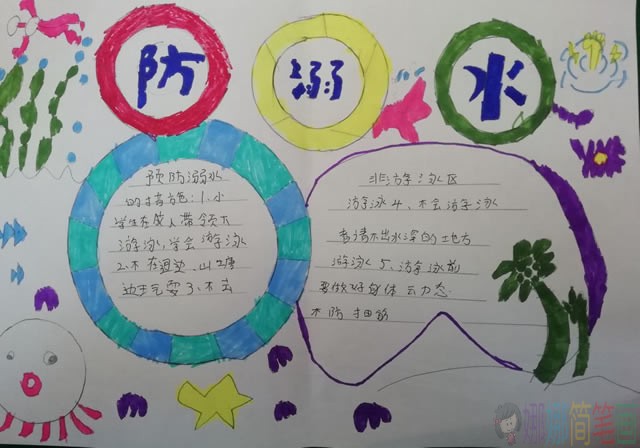 防 溺 水
预防溺水
的措施:1.小
学生在家人带领下
游泳,学会游泳
2.不在河边、山塘
边玩耍 3.不去
非游泳区
游泳 4.不会游泳
者请不出水深的地方
游泳 5.游泳前
要做好身体云力态
木防 抽筋
简笔画